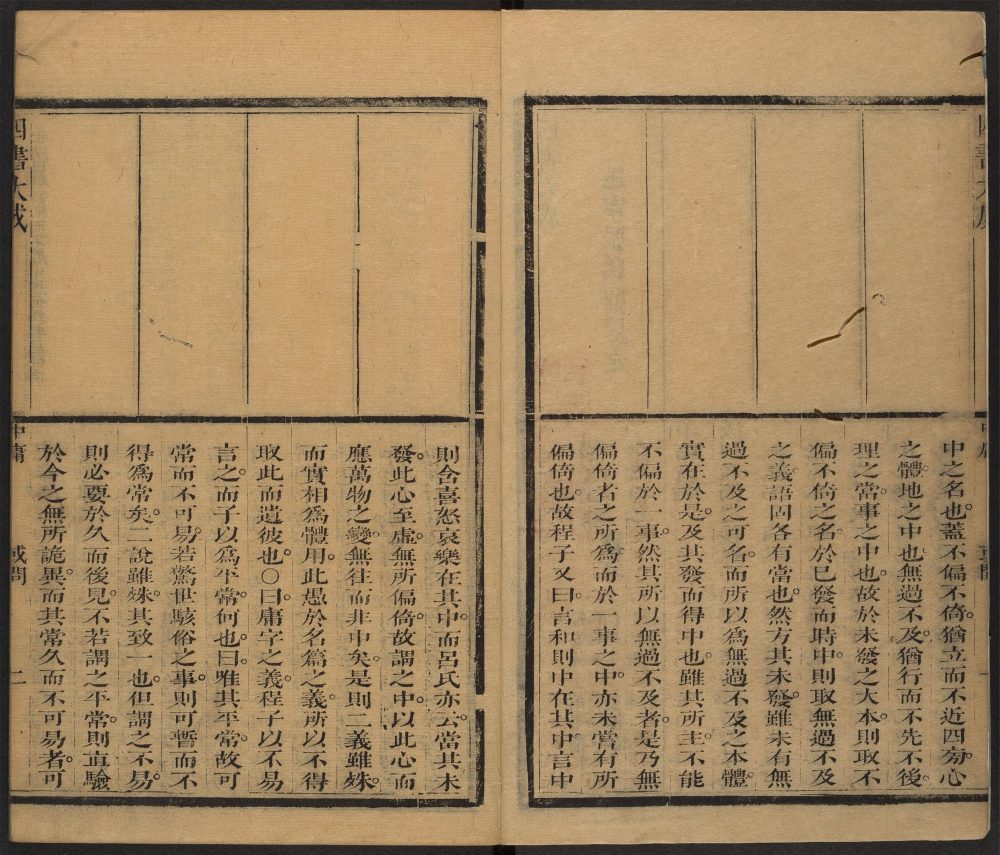 中之名也蓋不偏不倚猶立而不近四旁心
之體地之中也無過不及猶行而不先不後
理之當事之中也故於未發之大本則取不
偏不倚之名於已發而時中則取無過不及
之義語固各有當也然方其未發雖未有無
過不及之可名而所以為無過不及之本體
實在於是及其發而得中也雖其所主不能
不偏於一事然其所以無過不及者是乃無
偏倚者之所為而於一事之中亦未嘗有所
偏倚也故程子又曰言和則中在其中言中
則含喜怒哀樂在其中而呂氏亦云當其未
發此心至虛無所偏倚故謂之中以此心而
應萬物之變無往而非中矣是則二義雖殊
而實相為體用此愚於名篇之義所以不得
取此而遺彼也○曰庸字之義程子以不易
言之而子以為平常何也曰唯其平常故可
常而不可易若驚世駭俗之事則可暫而不
得為常矣二說雖殊其致一也但謂之不易
則必要於久而後見不若謂之平常則直驗
於今之無所詭異而其常久而不可易者可
四書大成
中庸
或問
二